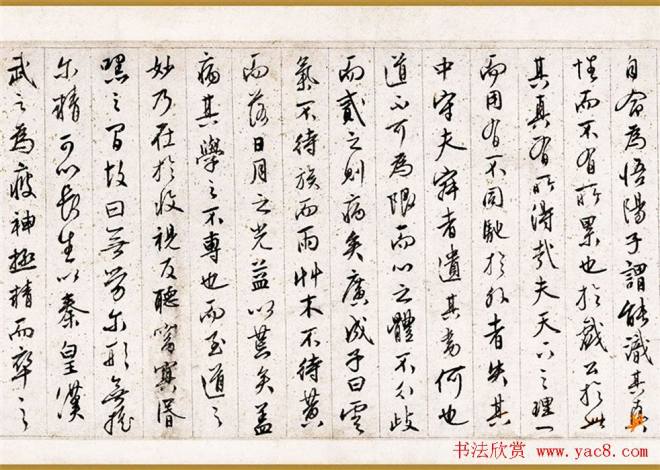 自命為悟陽子謂能識其真
性而不有所累也於戲公於此
其真有所得哉夫天下之理一
而用有不同馳於外者失其
中守夫寂者遺其為何也
道不可為限而心之體不分歧
而貳之則病矣廣成子曰雲
氣不待族而雨艸木不待黃
而落日月之光益以荒矣蓋
病其學之不專也而至道之
妙乃在於收視反聽窈冥昏
嘿之間故曰無勞尔形無搖
尔精可以長生以秦皇漢
武之為疲神極精而卒之
书法欣赏 www.yac8.com